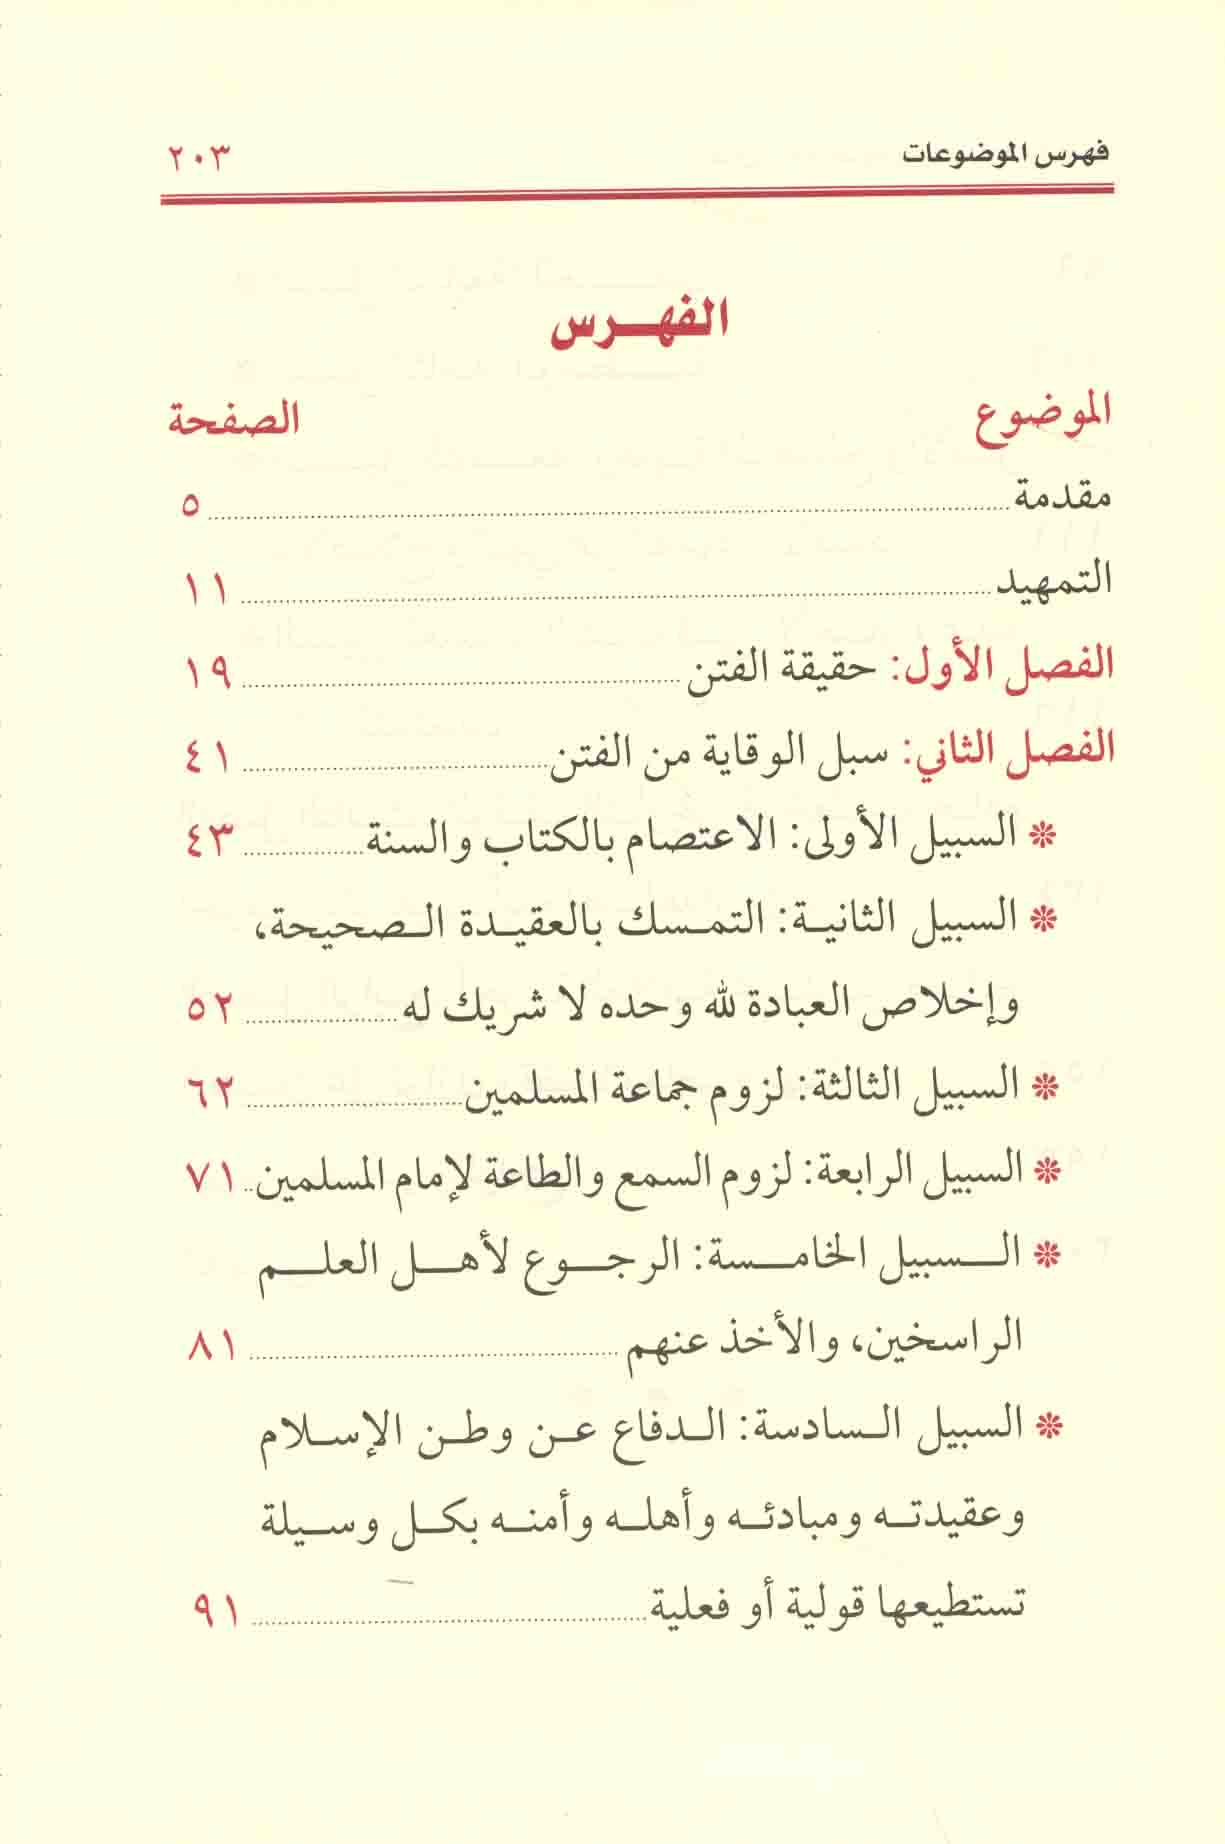 فهرس الموضوعات ٢٠٣
الفهرس
الموضوع الصفحة
مقدمة ٥
التمهيد ١١
الفصل الأول: حقيقة الفتن ١٩
الفصل الثاني: سبل الوقاية من الفتن ٤١
❊ السبيل الأولى: الاعتصام بالكتاب والسنة ٤٣
❊ السبيل الثانية: التمسك بالعقيدة الصحيحة،
وإخلاص العبادة لله وحده لا شريك له ٥٢
❊ السبيل الثالثة: لزوم جماعة المسلمين ٦٢
❊ السبيل الرابعة: لزوم السمع والطاعة لإمام المسلمين ٧١
❊ السبيل الخامسة: الرجوع لأهل العلم
الراسخين، والأخذ عنهم ٨١
❊ السبيل السادسة: الدفاع عن وطن الإسلام
وعقيدته ومبادئه وأهله وأمنه بكل وسيلة
تستطيعها قولية أو فعلية ٩١